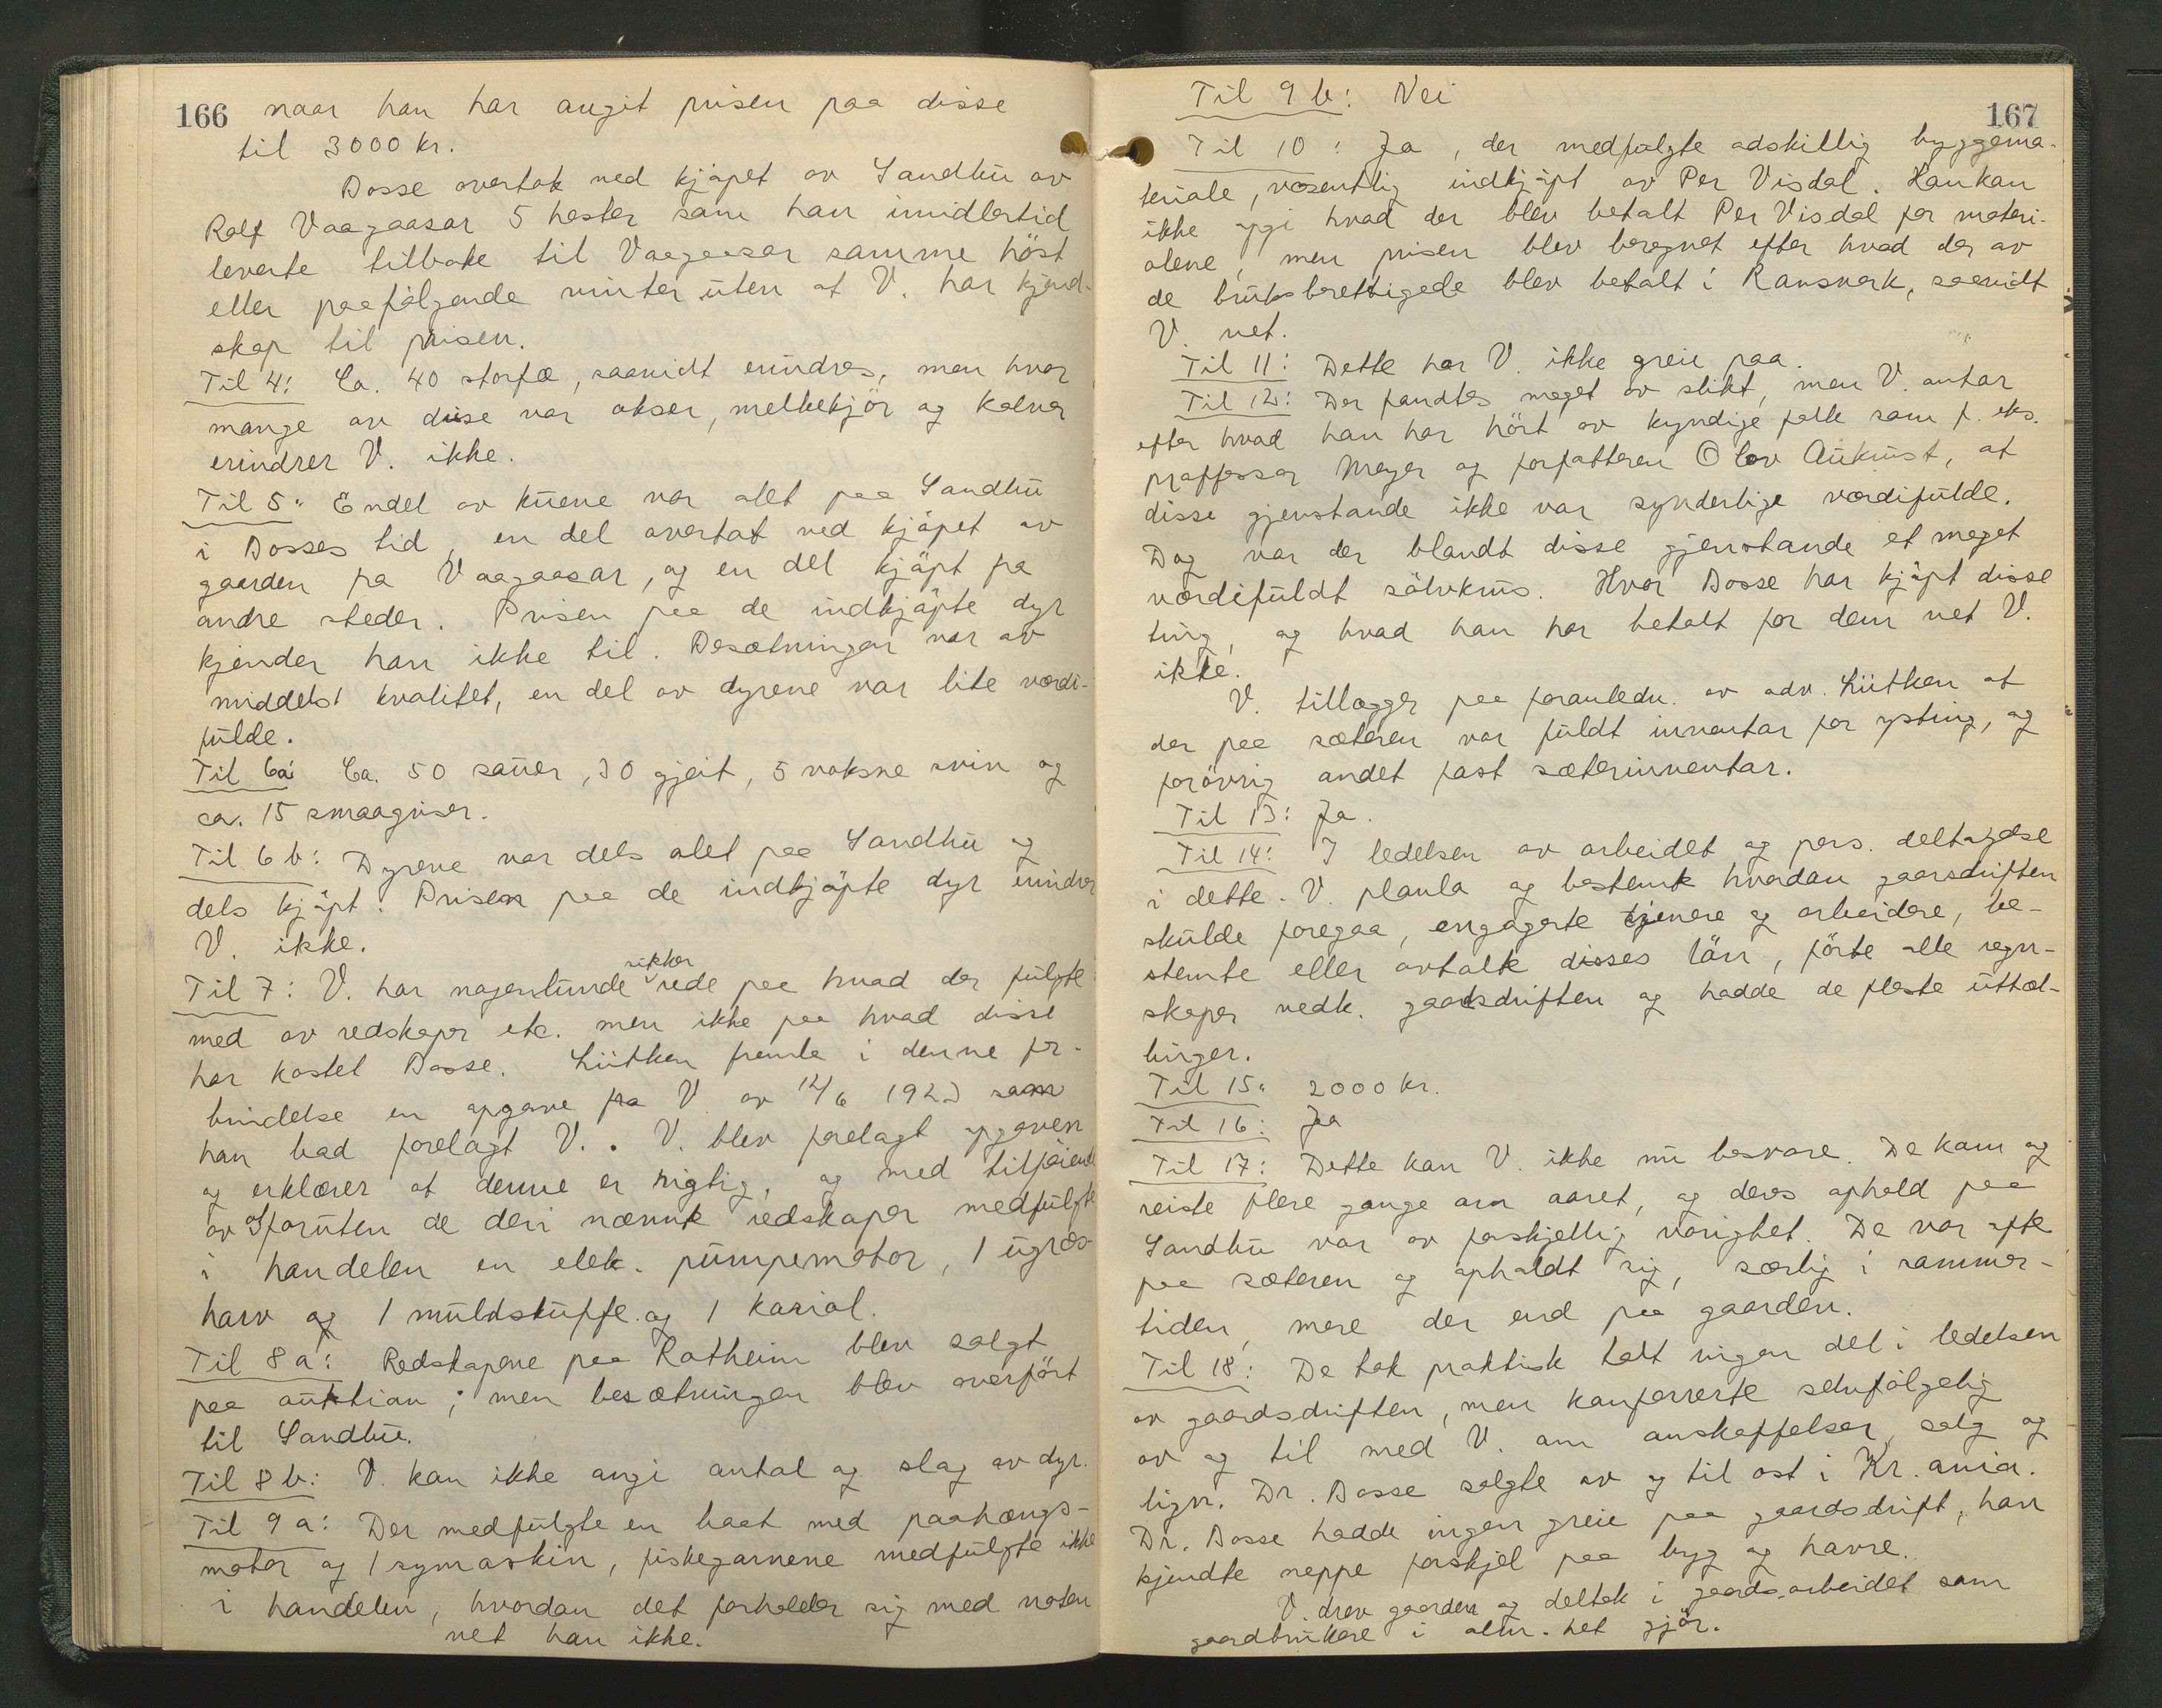 166 naar han har angit prisen paa disse
til 3000 kr.
Dosse overtok ved kjøpet av Sandbu av
Rolf Vaagaasar 5 hester som han imidlertid
leverte tilbake til Vaagaasar samme höst
eller paafølgende vinter uten at V. har kjend-
skap til prisen.
Til 4: Ca. 40 storfæ, saavidt erindres, men hvor
mange av disse var okser, melkekjör og kalver
erindrer V. ikke.
Til 5: Endel av kuene var alet paa Sandbu
i Dosses tid, en del overtat ved kjøpet av
gaarden fra Vaagaasar, og en del kjøpt fra
andre steder. Prisen paa de indkjøpte dyr
kjender han ikke til. Besætningen var av
middels kvalitet, en del av dyrene var lite værdi-
fulde.
Til 6a: Ca. 50 sauer, 30 gjeit, 5 voksne svin og
ca. 15 smaagriser.
Til 6 b: Dyrene var dels alet paa Sandbu og
dels kjøpt. Prisen paa de indkjøpte dyr erindrer
V. ikke.
Til 7: V. har nogenlunde sikker rede paa hvad der fulgte
med av redskaper etc. men ikke paa hvad disse
har kostet Dosse. Lütken fremla i denne for-
bindelse en opgave fra V. av 12/6 1923 som
han bad forelagt V. . V. blev forelagt opgaven
og erklærer at denne er rigtig, og med tilføiende
av at foruten de deri nævnte redskaper medfulgte
i handelen en elek. pumpemotor, 1 ugræs-
harv og 1 muldskuffe og 1 kariol.
Til 8 a: Redskapene paa Ratheim blev solgt
paa auktion; men besætningen blev overført
til Sandbu.
Til 8 b: V. kan ikke angi antal og slag av dyr.
Til 9 a: Der medfulgte en baat med paahængs-
motor og 1 symaskin, fiskegarnene medfulgte ikke
i handelen, hvordan det forholder sig med noten
vet han ikke.
Til 9 b: Nei
167
Til 10: Ja, der medfølgte adskillig byggema-
teriale, væsentlig indkjøpt av Per Visdal. Han kan
ikke opgi hvad der blev betalt Per Visdal for materi-
alene, men prisen blev beregnet efter hvad der av
de bruksberettigede blev betalt i Ransverk, saavidt
V. vet.
Til 11: Dette har V. ikke greie paa.
Til 12: Der fandtes meget av slikt, men V. antar
efter hvad han har hört av kyndige folk som f. eks.
proffessor Meyer og forfatteren Olav Aukrust, at
disse gjenstande ikke var synderlige værdifulde.
Dog var der blandt disse gjenstande et meget
værdifuldt sölvkrus. Hvor Dosse har kjøpt disse
ting, og hvad han har betalt for dem vet V.
ikke.
V. tillægger paa foranledn. av adv. Lütken at
der paa sæteren var fuldt inventar for ysting, og
forövrig andet fast sæterinventar.
Til 13: Ja.
Til 14: I ledelsen av arbeidet og pers. deltagelse
i dette. V. planla og bestemte hvordan gaarsdriften
skulde foregaa, engagerte tjenere og arbeidere, be-
stemte eller avtalte disses lön, förte alle regn-
skaper vedk. gaardsdriften og hadde de fleste uttæl-
linger.
Til 15: 2000 kr.
Til 16: Ja
Til 17: Dette kan V. ikke nu besvare. De kom og
reiste flere gange om aaret, og deres ophold paa
Sandbu var av forskjellig varighet. De var ofte
paa sæteren og opholdt sig, særlig i sommer-
tiden, mere der end paa gaarden.
Til 18: De tok praktisk talt ingen del i ledelsen
av gaardsdriften, men konfererte selvfølgelig
av og til med V. om anskaffelser, salg og
lign. Dr. Dosse solgte av og til ost i Kr. ania.
Dr. Dosse hadde ingen greie paa gaardsdrift, han
kjendte neppe forskjel paa byg og havre.
V. drev gaarden og deltok i gaardsarbeidet som
gaardbrukere i alm.het gjör.